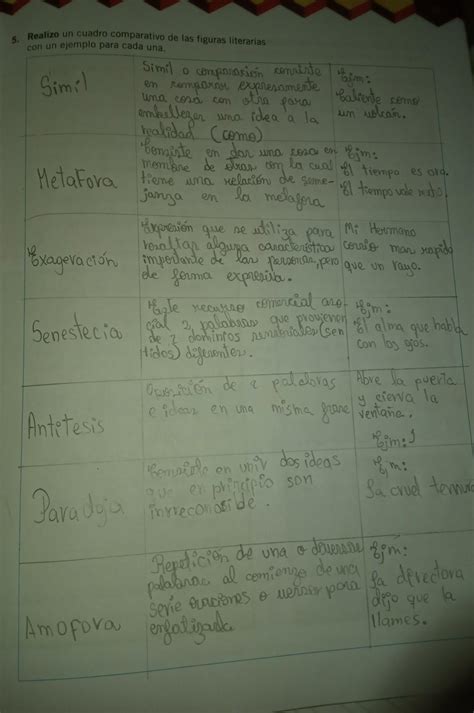 5. Realizo un cuadro comparativo de las figuras literarias
con un ejemplo para cada una.
Simil
Simil o comparasión consiste
en comparar expresamente
una cosa con otra para
embellezer una idea a la
realidad (como)
Ejm:
Caliente como
un volcán.
Metafora
Consiste en dar una cosa en
nombre de otras con la cual
tiene una relación de seme-
janza en la metafora
Ejm:
El tiempo es oro.
El tiempo vale
Exageración
Expresión que se utiliza para
resaltar alguna característica
importante de las personas, pero
de forma
Mi Hermano
corrio mas rapido
que un rayo.
Senestecia
Este recurso
2 palabras que provienen
de 2 dominios (sen
tidos) diferentes.
Ejm:
El alma que habla
con los ojos.
Antetesis
Oposición de 2 palabras
e ideas en una misma frase
Abre la puerta
y cierra la
ventana.
Ejm:
Paradoja
Consiste en unir dos ideas
que en principio son
Ejm:
La cruel ternura
Amofora
Repetición de una o
palabras al comienzo de una
serie oraciones o para
Ejm:
La directora
dijo que la
llames.